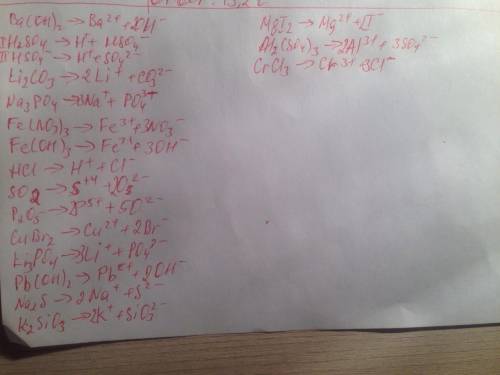 Ba(OH)₂ → Ba²⁺ + 2OH⁻
I H₂SO₄ → H⁺ + HSO₄⁻
II HSO₄⁻ → H⁺ + SO₄²⁻
Li₂CO₃ → 2Li⁺ + CO₃²⁻
Na₃PO₄ → 3Na⁺ + PO₄³⁻
Fe(NO₃)₃ → Fe³⁺ + 3NO₃⁻
Fe(OH)₃ → Fe³⁺ + 3OH⁻
HCl → H⁺ + Cl⁻
SO₂ → S⁺⁴ +
P₂O₅ → 2P⁵⁺ + 5O²⁻
CuBr₂ → Cu²⁺ + 2Br⁻
Li₃PO₄ → 3Li⁺ + PO₄³⁻
Pb(OH)₂ → Pb²⁺ + 2OH⁻
Na₂S → 2Na⁺ + S²⁻
K₂SiO₃ → 2K⁺ + SiO₃²⁻
MgI₂ → Mg²⁺ + I⁻
Al₂(SO₄)₃ → 2Al³⁺ + 3SO₄²⁻
CrCl₃ → Cr³⁺ + 3Cl⁻